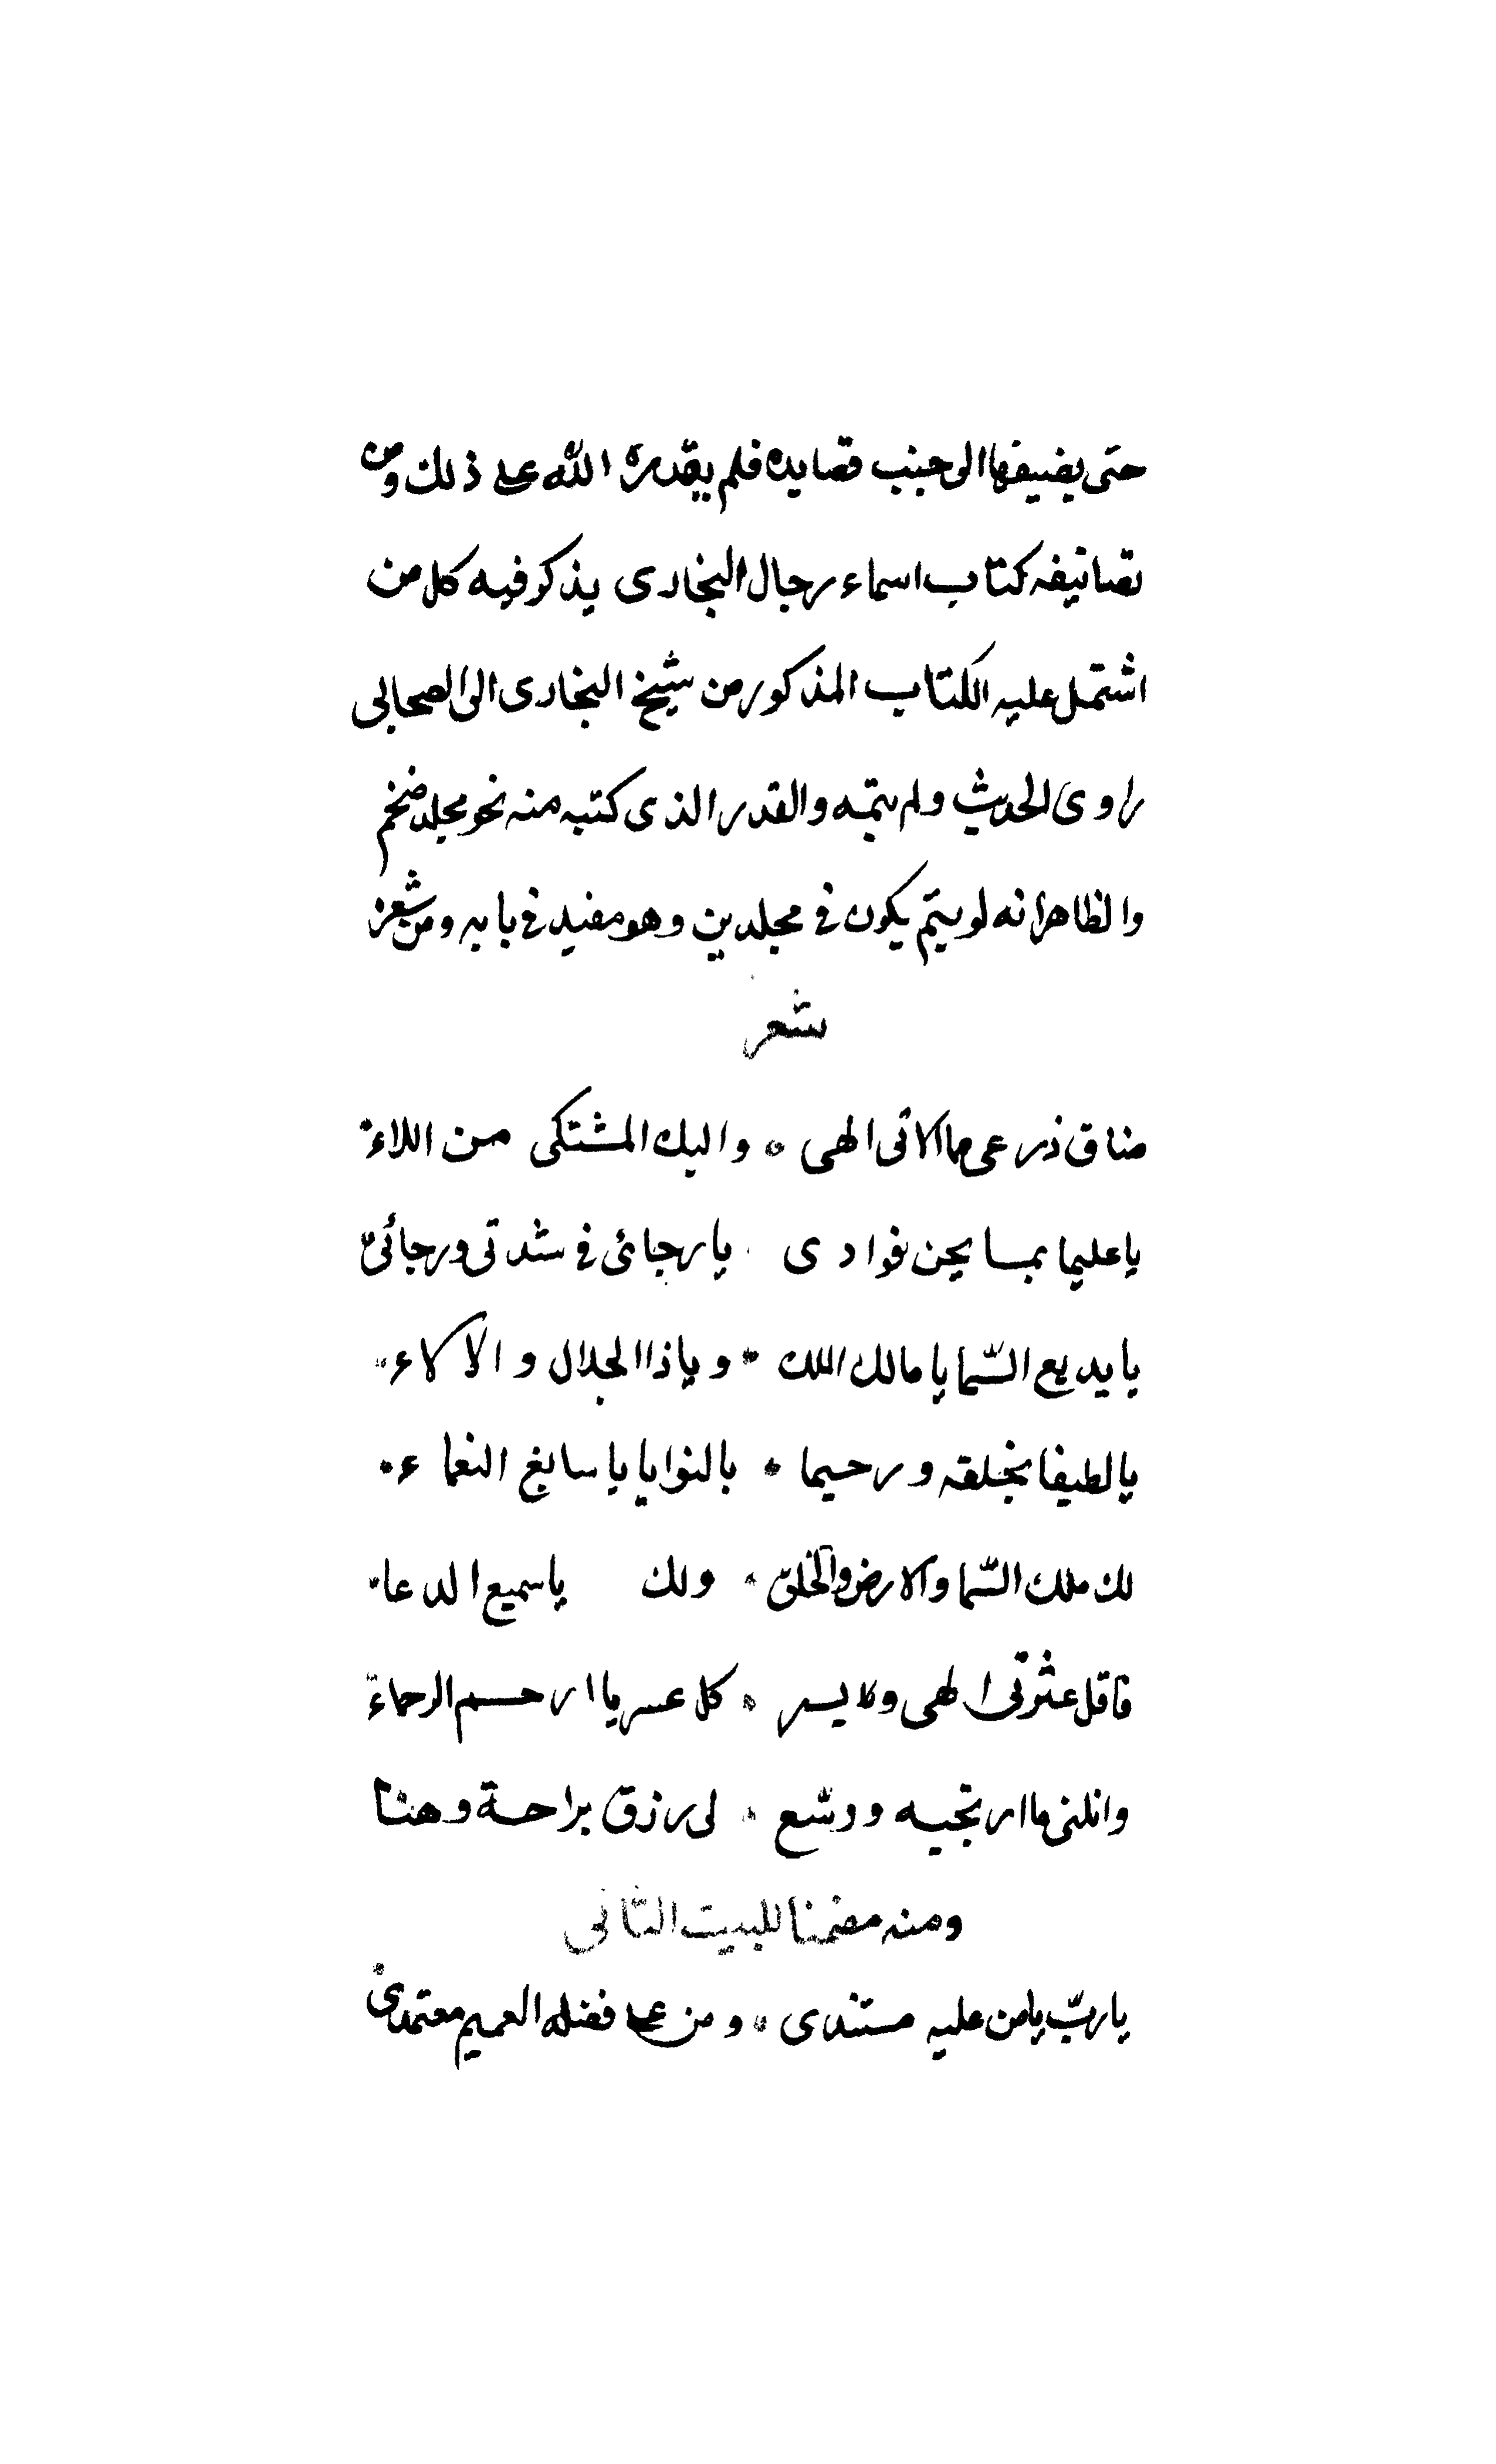 حتى يضيفها الى جنب قصايده فلم يقدره الله على ذلك ومن
تصانيفه كتاب اسماء رجال البخارى يذكر فيه كل من
اشتمل عليه الكتاب المذكور من شيخ البخارى الى الصحابى
راوى الحديث ولم يتمه والقدر الذى كتبه منه نحو مجلد ضخم
والظاهر انه لو يتم يكون فى مجلدين وهو مفيد فى بابه ومن شعره
شعر
ضاق ذرعى مما الاقى الهى • واليك المشتكى من اللاء
يا عليما بما يجن فوادى يا رجائى فى شدتى ورجائى
يا بديع السّما يا مالك الملك • ويا ذا الجلال والالاء
يا لطيفا بخلقه ورحيما • بالنوايا يا سابغ النعماء
لك ملك السّما والارض والخلق • ولك يا سميع الدعا
فاقل عثرتى الهى ويسر • كل عسر يا ارحم الرحماء
وانلنى ما ارتجيه ووسّع • لى رزق براحة وهنا
ومنه مضمنا للبيت الثانى
يا ربّ يا من عليه مستندى • ومن على فضله العميم معتمدى